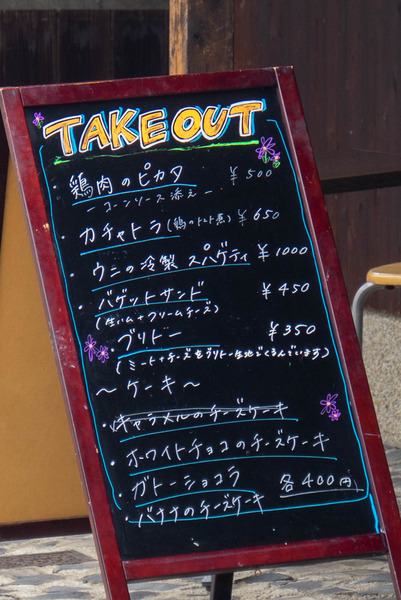 TAKE OUT
・鶏肉のピカタ ¥500
ーコーンソース添えー
・カチャトラ(鶏のトマト煮) ¥650
・ウニの冷製 スパゲティ ¥1000
・バゲットサンド ¥450
(生ハム+クリームチーズ)
・ブリトー ¥350
(ミート+チーズをブリトー生地でくるんでいます)
〜ケーキ〜
キャラメルのチーズケーキ
・ホワイトチョコのチーズケーキ
・ガトーショコラ 各400円
・バナナのチーズケーキ